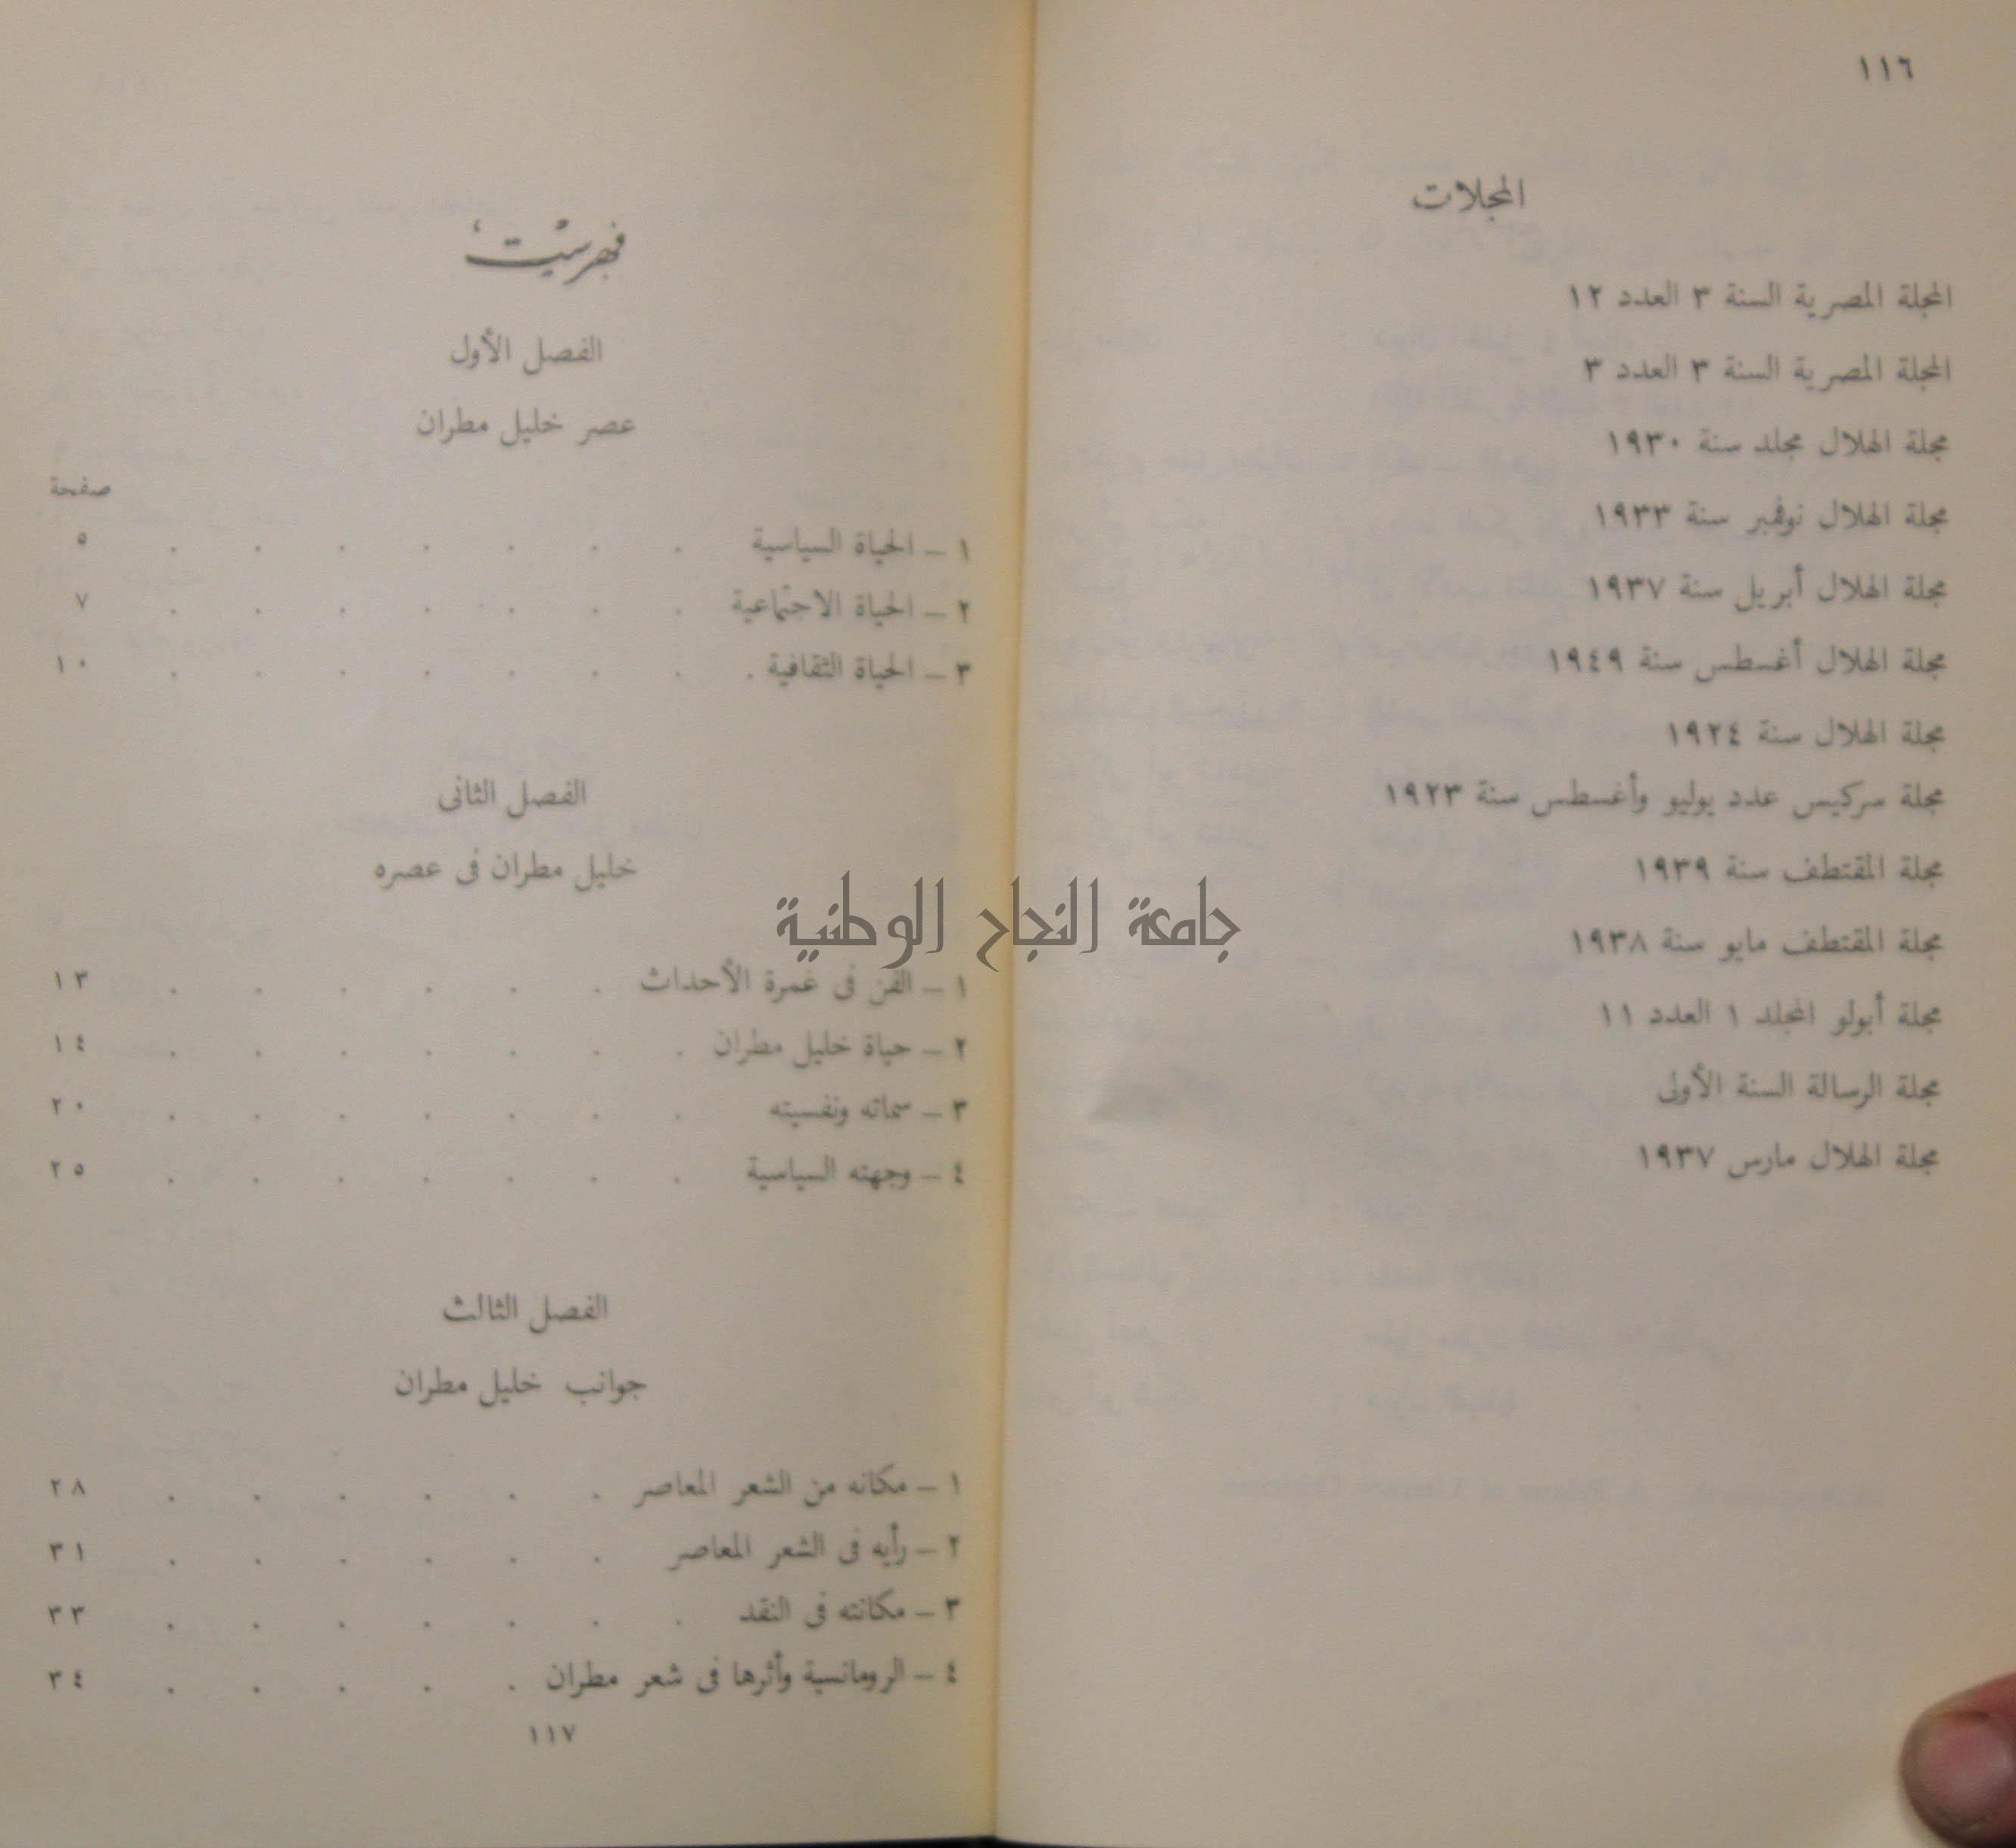 ١١٦
المجلات
المجلة المصرية السنة ٣ العدد ١٢
المجلة المصرية السنة ٣ العدد ٣
مجلة الهلال مجلد سنة ١٩٣٠
مجلة الهلال نوفمبر سنة ١٩٣٣
مجلة الهلال أبريل سنة ١٩٣٧
مجلة الهلال أغسطس سنة ١٩٤٩
مجلة الهلال سنة ١٩٢٤
مجلة سركيس عدد يوليو وأغسطس سنة ١٩٢٣
مجلة المقتطف سنة ١٩٣٩
مجلة المقتطف مايو سنة ١٩٣٨
مجلة أبولو المجلد ١ العدد ١١
مجلة الرسالة السنة الأولى
مجلة الهلال مارس ١٩٣٧
جامعة النجاح الوطنية
فهرست
الفصل الأول
عصر خليل مطران
صفحة
١ – الحياة السياسية . . . . . . . ٥
٢ – الحياة الاجتماعية . . . . . . . ٧
٣ – الحياة الثقافية . . . . . . . . ١٠
الفصل الثانى
خليل مطران فى عصره
١ – الفن فى غمرة الأحداث . . . . . . ١٣
٢ – حياة خليل مطران . . . . . . . ١٤
٣ – سماته ونفسيته . . . . . . . ٢٠
٤ – وجهته السياسية . . . . . . . ٢٥
الفصل الثالث
جوانب خليل مطران
١ – مكانه من الشعر المعاصر . . . . . . ٢٨
٢ – رأيه فى الشعر المعاصر . . . . . . ٣١
٣ – مكانته فى النقد . . . . . . . ٣٣
٤ – الرومانسية وأثرها فى شعر مطران . . . . . ٣٤
١١٧